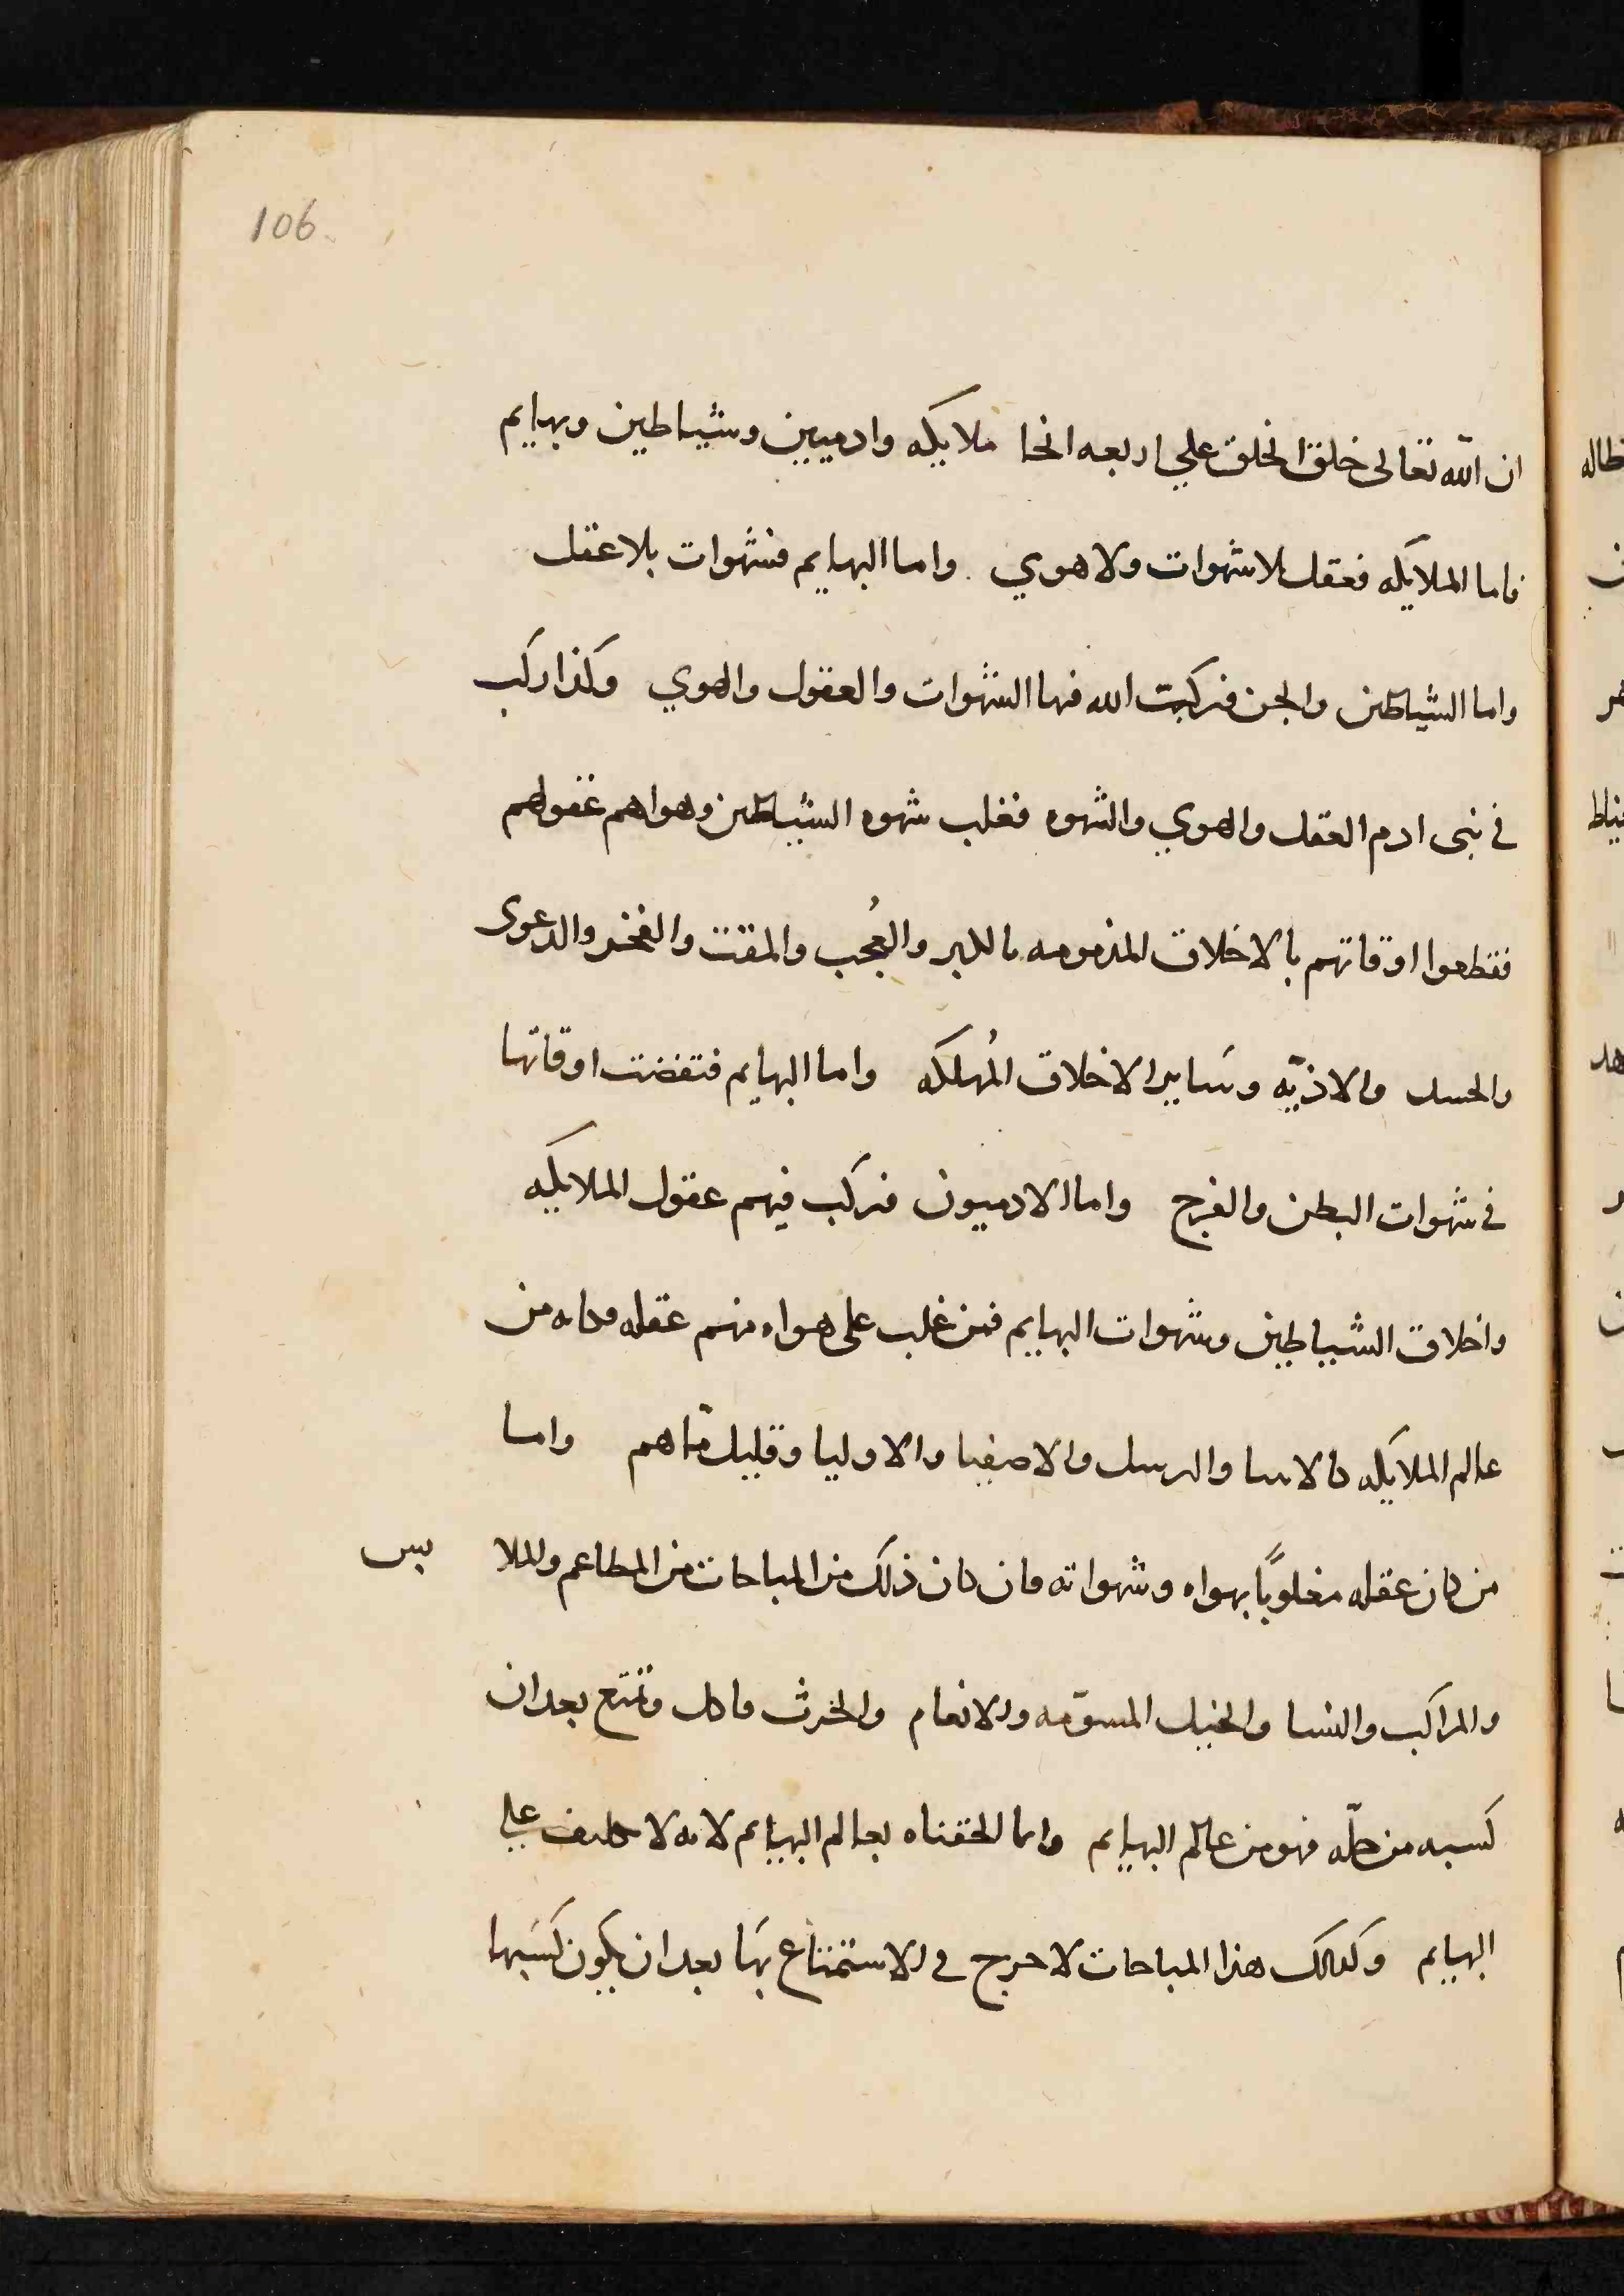 106
ان الله تعالى خلق الخلق علي اربعه انحا ملايكه وادميين وشياطين وبهايم
فاما الملايكه فعقل بلا شهوات ولا هوي . واما البهايم فشهوات بلا عقل
واما الشياطين والجن فركبت الله فيها الشهوات والعقول والهوي وكذا ركب
في بني ادم العقل والهوي والشهوه فغلب شهوه الشياطين وهواهم عقولهم
فقطعوا اوقاتهم بالاخلاق المذمومه كالكبر والعُجب والمقت والفخر والدعوى
والحسد والاذيّه وسَاير الاخلاق المُهلكه واما البهايم فتقضت اوقاتها
في شهوات البطن والفرج واما الادميون فركب فيهم عقول الملايكه
واخلاق الشياطين وشهوات البهايم فمن غلب على هواه منهم عقله فكانه من
عالم الملايكه كالانبيا والرسل والاصفيا والاوليا وقليل مّا هم واما
من كان عقله مغلوبًا بهواه وشهواته فان كان ذلك من المباحات من المطاعم والملا بس
والمراكب والنسا والخيل المسوّمه والانعام والحرث فاكل وتمتع بعد ان
كسبه من حلّه فهو من عالم البهايم وانما الحقناه بعالم البهايم لانه لا تكليف علي
البهايم وكذلك هذا المباحات لا حرج في الاستمتاع بهَا بعد ان يكون كسَبها